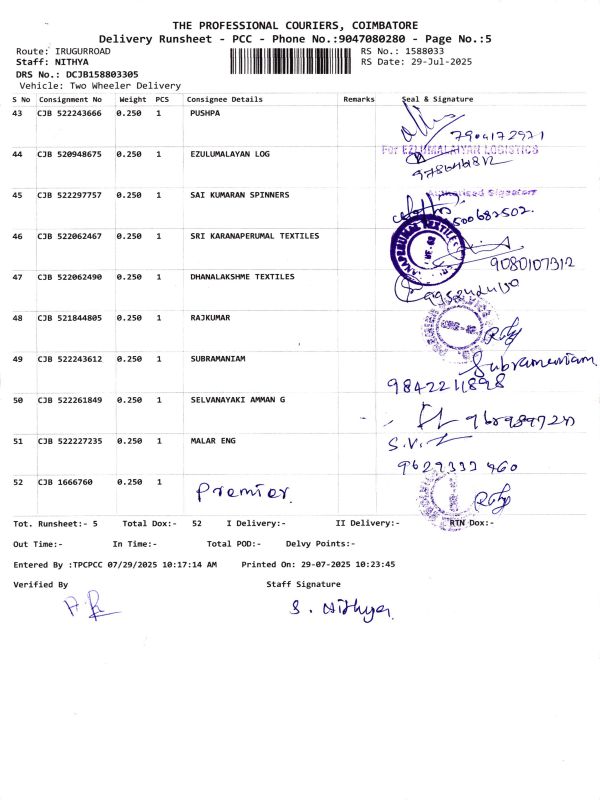 THE PROFESSIONAL COURIERS, COIMBATORE
Delivery Runsheet - PCC - Phone No.:9047080280 - Page No.:5
Route: IRUGURROAD RS No.: 1588033
Staff: NITHYA RS Date: 29-Jul-2025
DRS No.: DCJB158803305
Vehicle: Two Wheeler Delivery
S No Consignment No Weight PCS Consignee Details Remarks Seal & Signature
43 CJB 522243666 0.250 1 PUSHPA
7904172971
44 CJB 520948675 0.250 1 EZULUMALAYAN LOG For EZULUMALAIYAN LOGISTICS
45 CJB 522297757 0.250 1 SAI KUMARAN SPINNERS Authorised Signatory
500682502.
46 CJB 522062467 0.250 1 SRI KARANAPERUMAL TEXTILES
9080107312
47 CJB 522062490 0.250 1 DHANALAKSHME TEXTILES
48 CJB 521844805 0.250 1 RAJKUMAR
49 CJB 522243612 0.250 1 SUBRAMANIAM Subramaniam
9842211898
50 CJB 522261849 0.250 1 SELVANAYAKI AMMAN G
51 CJB 522227235 0.250 1 MALAR ENG S.V.
9629332460
52 CJB 1666760 0.250 1 Premier.
Tot. Runsheet:- 5 Total Dox:- 52 I Delivery:- II Delivery:- RTN Dox:-
Out Time:- In Time:- Total POD:- Delvy Points:-
Entered By :TPCPCC 07/29/2025 10:17:14 AM Printed On: 29-07-2025 10:23:45
Verified By Staff Signature
S. Nithya.